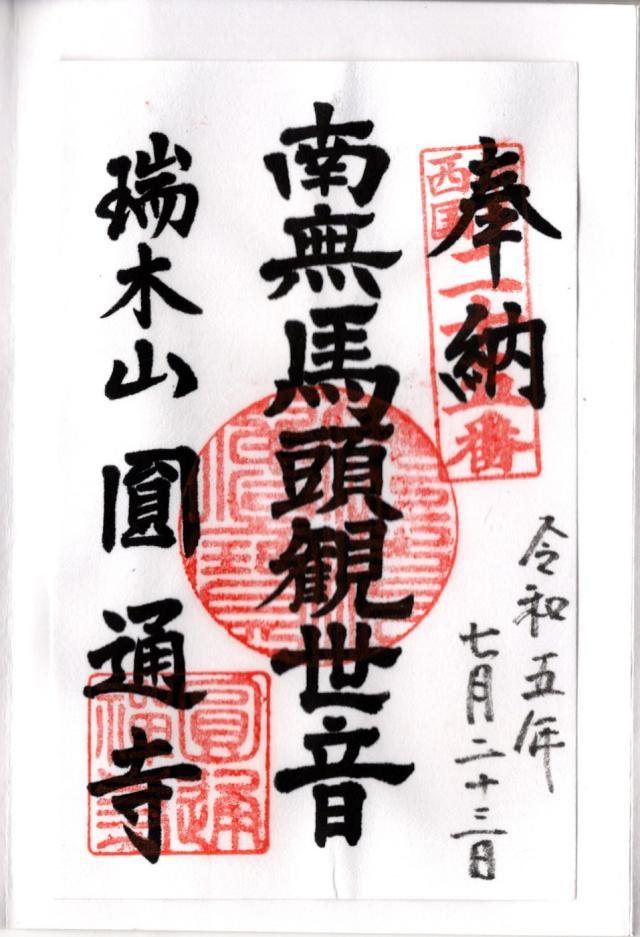 奉納
西国二十五番
令和五年
七月二十三日
南無馬頭観世音
瑞木山圓通寺
圓通